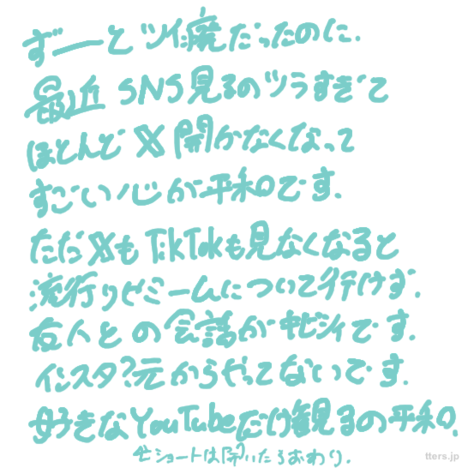 ずーーとツイ廃だったのに、
最近 SNS見るのツラすぎて
ほとんどX開かなくなって
すごい心が平和です.
ただXもTikTokも見なくなると
流行りやミームについて行けず.
友人との会話がｻﾋﾞｼｲです.
インスタ?元からやってないです.
好きなYouTubeだけ観るの平和.
※ショートは開いたらおわり.
tters.jp